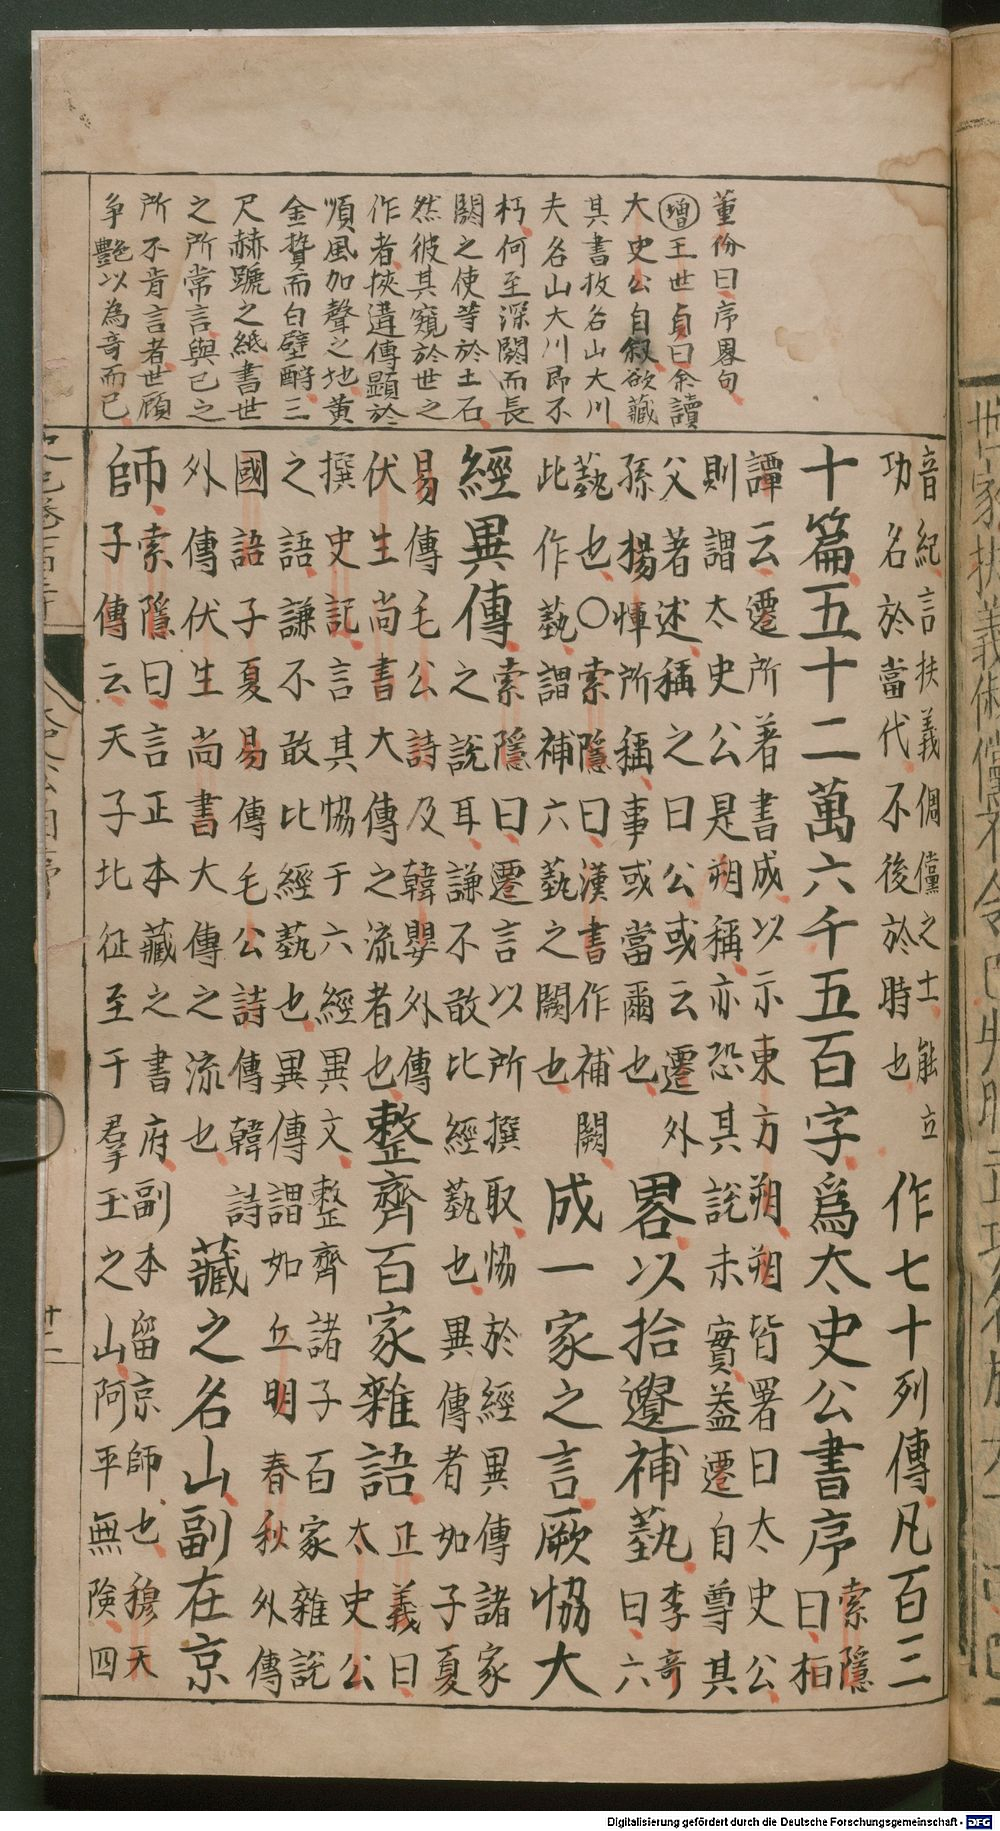 董份曰序畧句
增王世貞曰余讀
大史公自叙欲藏
其書扵名山大川
夫名山大川即不
朽何至深闕而長
闕之使等於土石
然彼其窺於世之
作者挾遘傳顯於
順風加聲之地黄
金贄而白璧酧三
尺赫蹏之紙書世
之所常言與已之
所不肯言者世顧
争艷以為竒而已
音紀言扶義倜儻之士能立
功名於當代不後於時也
作七十列傳凡百三
十篇五十二萬六千五百字爲太史公書序
索隱
曰桓
譚云遷所著書成以示東方朔朔皆署曰太史公
則謂太史公是朔稱亦恐其說未實葢遷自尊其
父著述稱之曰公或云遷外
孫楊惲所稱事或當爾也
畧以拾遺補蓺
李竒
曰六
蓺也○索隱曰漢書作補闕
此作蓺謂補六蓺之闕也
成一家之言厥恊大
經異傳
索隱曰遷言以所撰取恊於經異傳諸家
之說耳謙不敢比經蓺也異傳者如子夏
易傳毛公詩及韓嬰外傳
伏生尚書大傳之流者也
整齊百家雜語
正義曰
太史公
撰史記言其恊于六經異文整齊諸子百家雜說
之語謙不敢比經蓺也異傳謂如丘明春秋外傳
國語子夏易傳毛公詩傳韓詩
外傳伏生尚書大傳之流也
藏之名山副在京
師
索隱曰言正本藏之書府副本留京師也穆天
子傳云天子北征至于羣玉之山阿平無險四
廿二
Digitalisierung gefördert durch die Deutsche Forschungsgemeinschaft - DFG